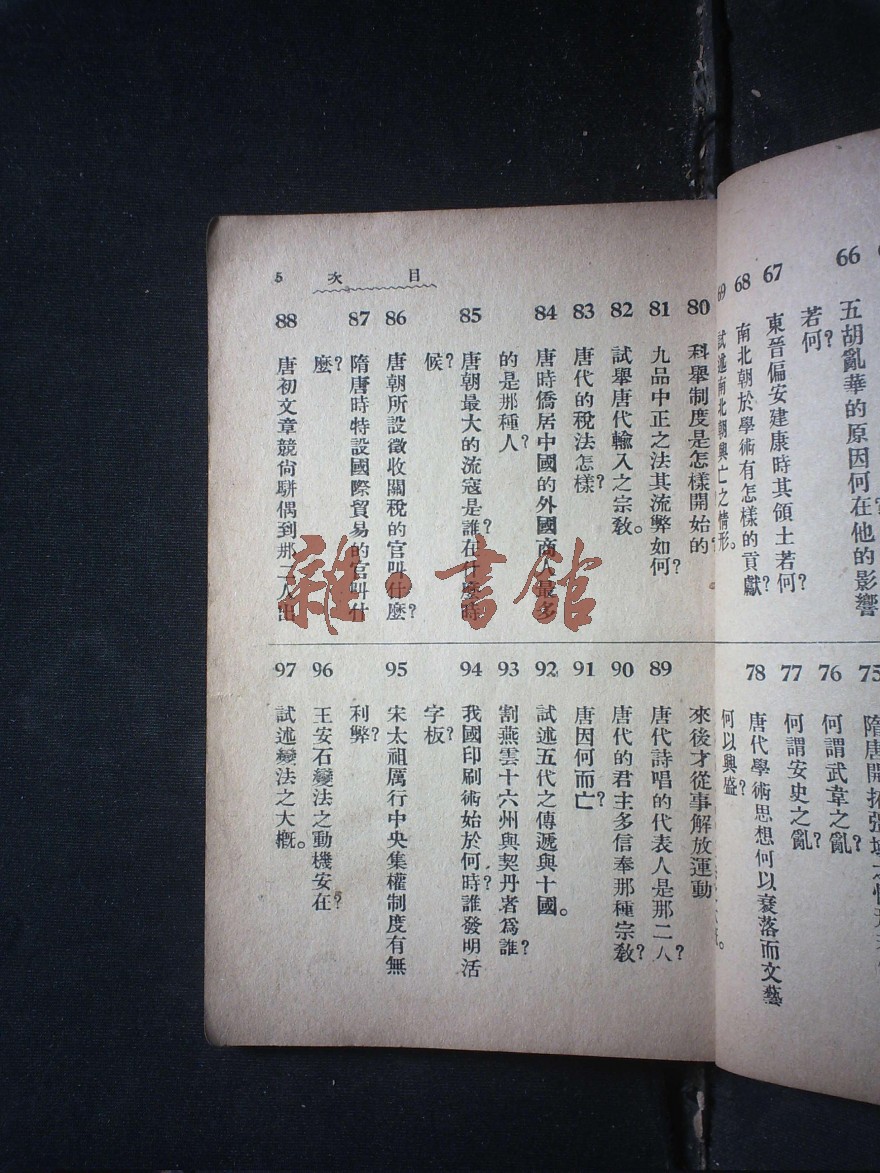 66 五胡亂華的原因何在？他的影響
若何？
67 東晉偏安建康時其領土若何？
68 南北朝於學術有怎樣的貢獻？
69 試述南北朝興亡之情形。
75 隋唐開拓疆域之情形
76 何謂武韋之亂？
77 何謂安史之亂？
78 唐代學術思想何以衰落而文藝
何以興盛？
目次 5
80 科舉制度是怎樣開始的？
81 九品中正之法其流弊如何？
82 試舉唐代輸入之宗敎。
83 唐代的稅法怎樣？
84 唐時僑居中國的外國商人最多
的是那種人？
85 唐朝最大的流寇是誰？在什麼時
候？
86 唐朝所設徵收關稅的官叫什麼？
87 隋唐時特設國際貿易的官叫什
麼？
88 唐初文章競尙駢偶到那二人出
來後才從事解放運動
89 唐代詩唱的代表人是那二人？
90 唐代的君主多信奉那種宗敎？
91 唐因何而亡？
92 試述五代之傳遞與十國。
93 割燕雲十六州與契丹者爲誰？
94 我國印刷術始於何時？誰發明活
字板？
95 宋太祖厲行中央集權制度有無
利弊？
96 王安石變法之動機安在？
97 試述變法之大槪。
雜·書館